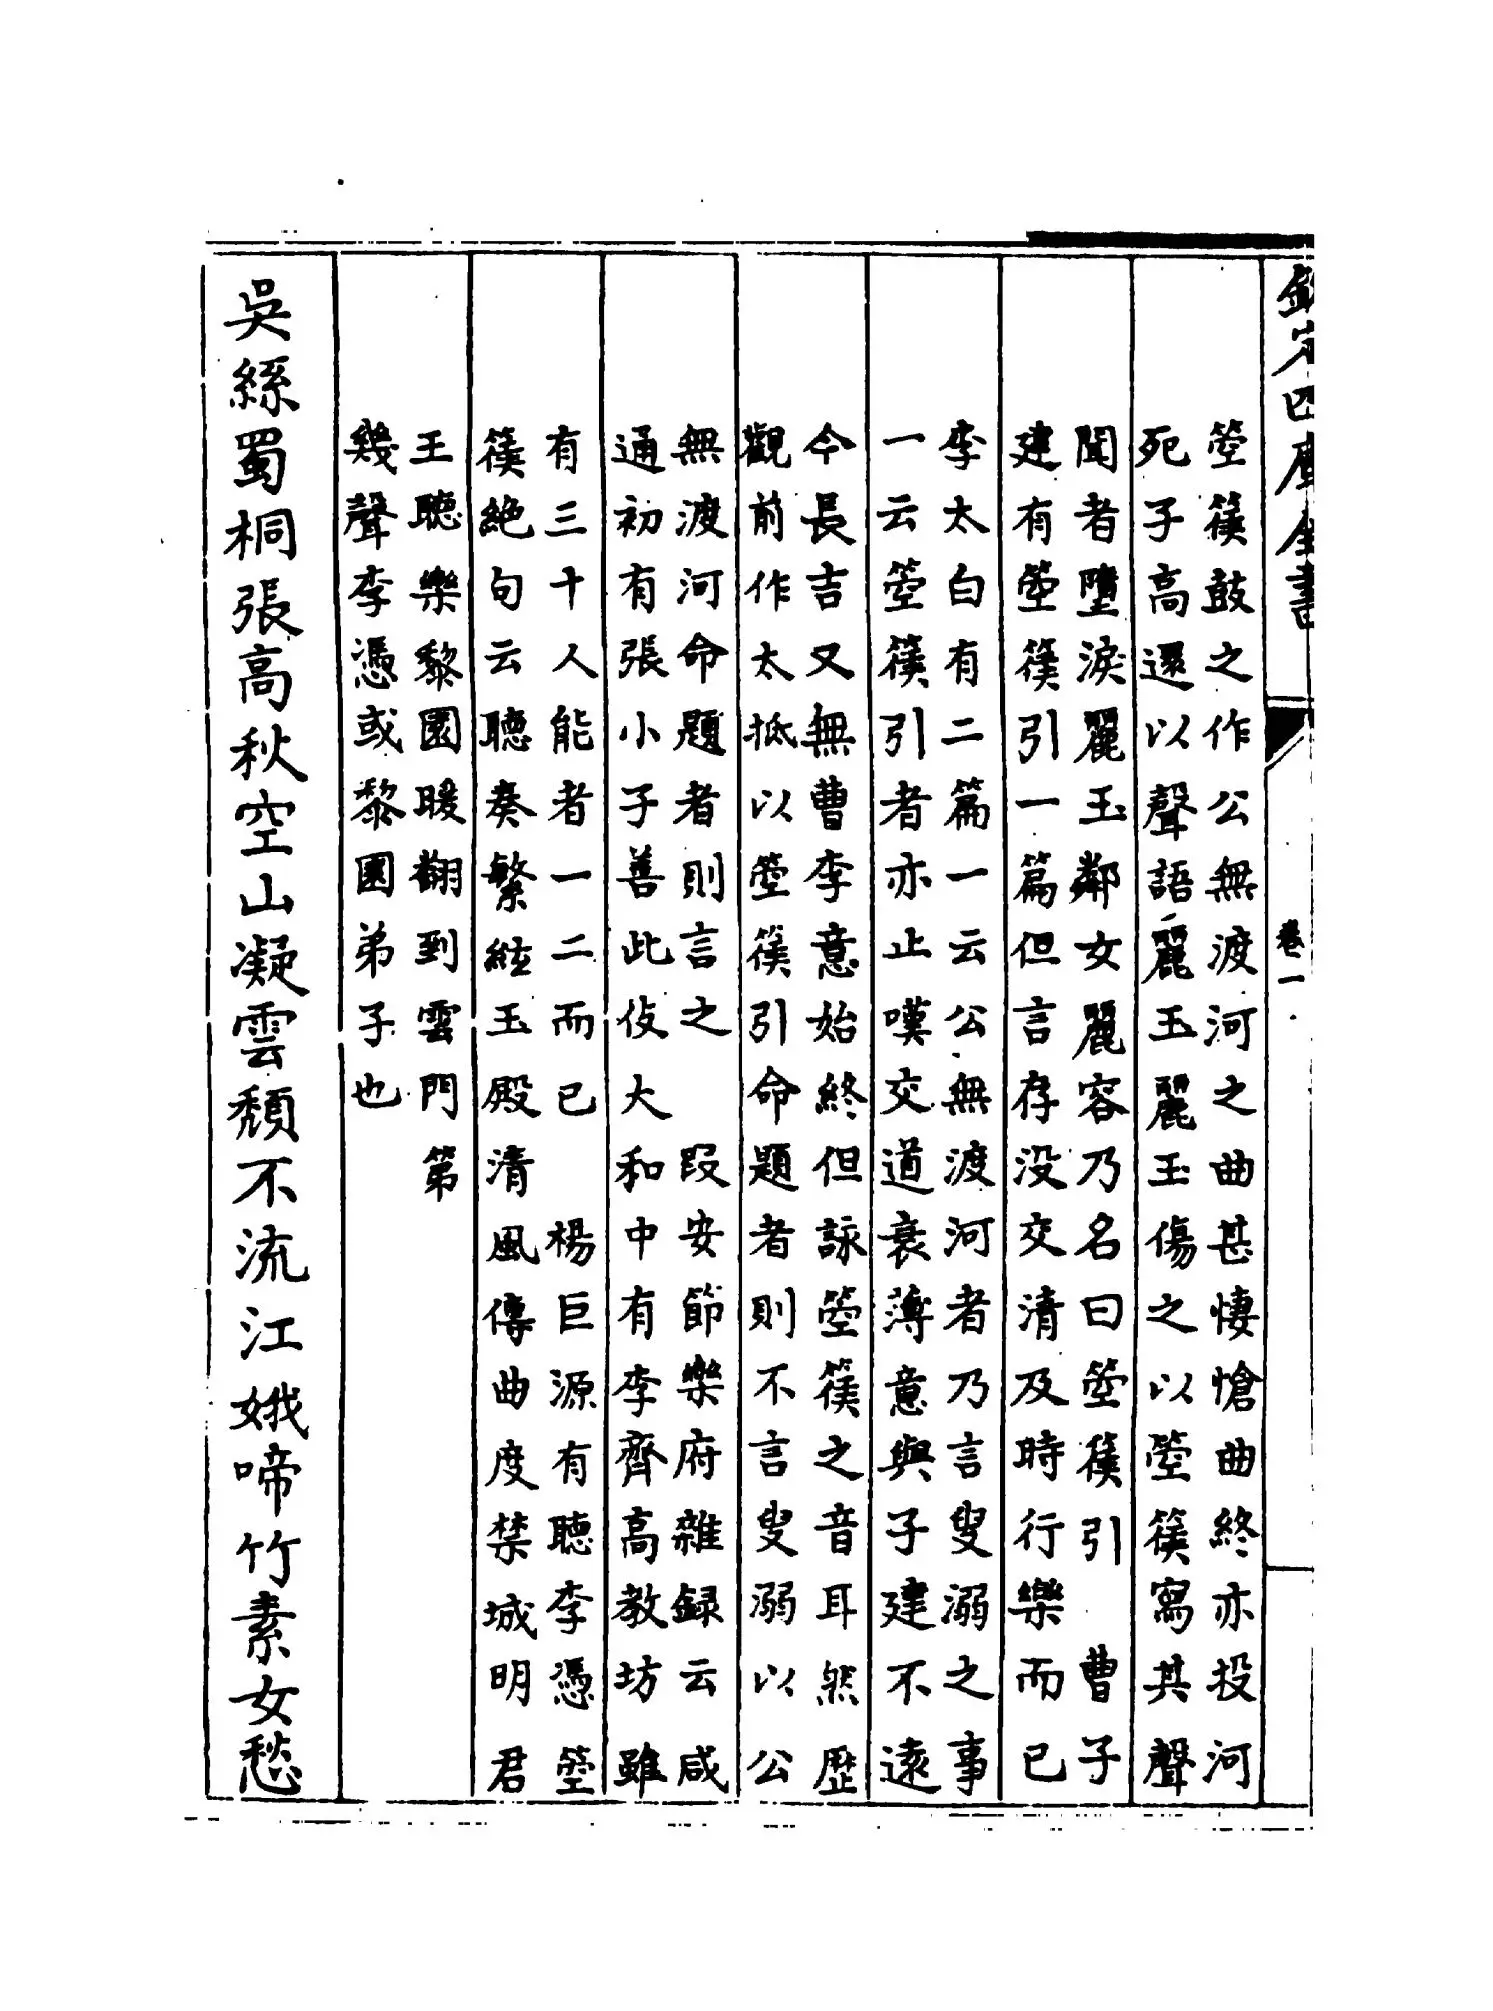 欽定四庫全書
卷一
箜篌鼓之作公無渡河之曲甚悽愴曲終亦投河
死子高還以聲語麗玉麗玉傷之以箜篌寫其聲
聞者墮淚麗玉鄰女麗容乃名曰箜篌引　曹子
建有箜篌引一篇但言存没交清及時行樂而已
李太白有二篇一云公無渡河者乃言叟溺之事
一云箜篌引者亦止嘆交道衰薄意與子建不遠
今長吉又無曹李意始終但詠箜篌之音耳然歴
觀前作太抵以箜篌引命題者則不言叟溺以公
無渡河命題者則言之　段安節樂府雜録云咸
通初有張小子善此伎大和中有李齊高教坊雖
有三十人能者一二而已　楊巨源有聽李憑箜
篌絶句云聽奏繁絃玉殿清風傳曲度禁城明君
王聽樂黎園暖翻到雲門第
幾聲李憑或黎園弟子也
吳絲蜀桐張高秋空山凝雲頹不流江娥啼竹素女愁